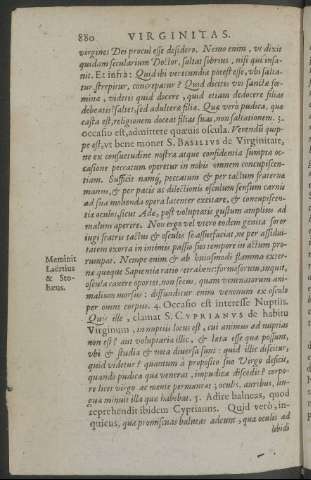 880 VIRGINITAS.
virgines Dei procul esse desidero. Nemo enim, vt dixit
quidam secularium Doctor, saltat sobrius, nisi qui insa-
nit. Et infrà: Quid ibi verecundia potest esse, vbi salta-
tur, strepitur, concrepatur? Quid dicitis vos sanctæ fœ-
minæ, videtis quid docere, quid etiam dedocere filias
debeatis? saltet, sed adulteræ filia. Quæ verò pudica, quæ
casta est, religionem doceat filias suas, non saltationem. 3.
occasio est, admittere quæuis oscula. Verendū quip-
pe est, vt bene monet S. BASILIVS de Virginitate,
ne ex consuetudine nostra atque confidentia sumpta oc-
casione peccatum operetur in nobis omnem concupiscen-
tiam. Sufficit namq́; peccatum & per tactum fraterna
manus, & per pacis ac dilectionis osculum sensum carnis
ad sua mouenda opera latenter excitare, & concupiscen-
tia oculis, sicut Adæ, post voluptatis gustum amplius ad
malum aperire. Non ergo vel vtero eodem genita soror
iugi fratris tactus & osculo se assuefaciat, ne per assidui-
tatem exorta in intimis passio suo tempore in actum pro-
rumpat. Nempe enim & ab huiusmodi flamma exter-
næ quoque Sapientia ratio retrahens: formosorum, inquit,
oscula cauere oportet, non secus, quam venenatorum ani-
malium morsus: diffunditur enim venenum ex osculo
per omne corpus. 4. Occasio est interesse Nuptiis.
Quis ille, clamat S. CYPRIANVS de habitu
Virginum, in nuptiis locus est, cui animus ad nuptias
non est? aut voluptaria illic, & læta esse quæ possunt,
vbi & studia & vota diuersa sunt: quid illic discitur,
quid videtur? quantum à proposito suo Virgo deficit,
quando pudica quæ venerat, impudica discedit? corpo-
re licet virgo ac mente permaneat; oculis, auribus, lin-
gua minuit illa quæ habebat. 5. Adire balneas, quod
reprehendit ibidem Cyprianus. Quid verò, in-
quit, quæ promiscuas balneas adeunt, quæ oculis ad
libidi
Meminit
Laërtius
& Sto-
bæus.